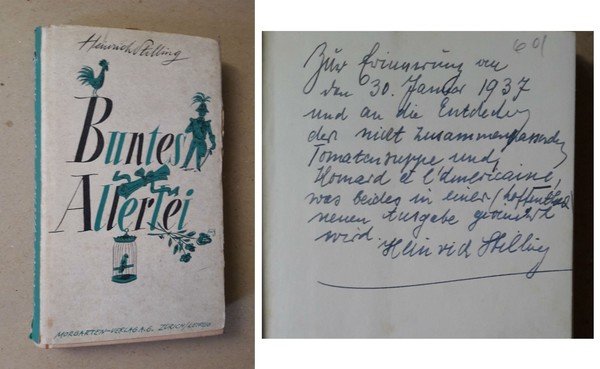 Heinrich Stilling
Buntes
Allerlei
MORGARTEN-VERLAG A.G. ZÜRICH/LEIPZIG
Zur Erinnerung an
den 30. Januar 1937
und an die Entdeckung
der nicht zusammenpassenden
Tomatensuppe und
Homard à l'Américaine,
was beides in einer (hoffentlich
neuen Ausgabe
wird.
Heinrich Stilling